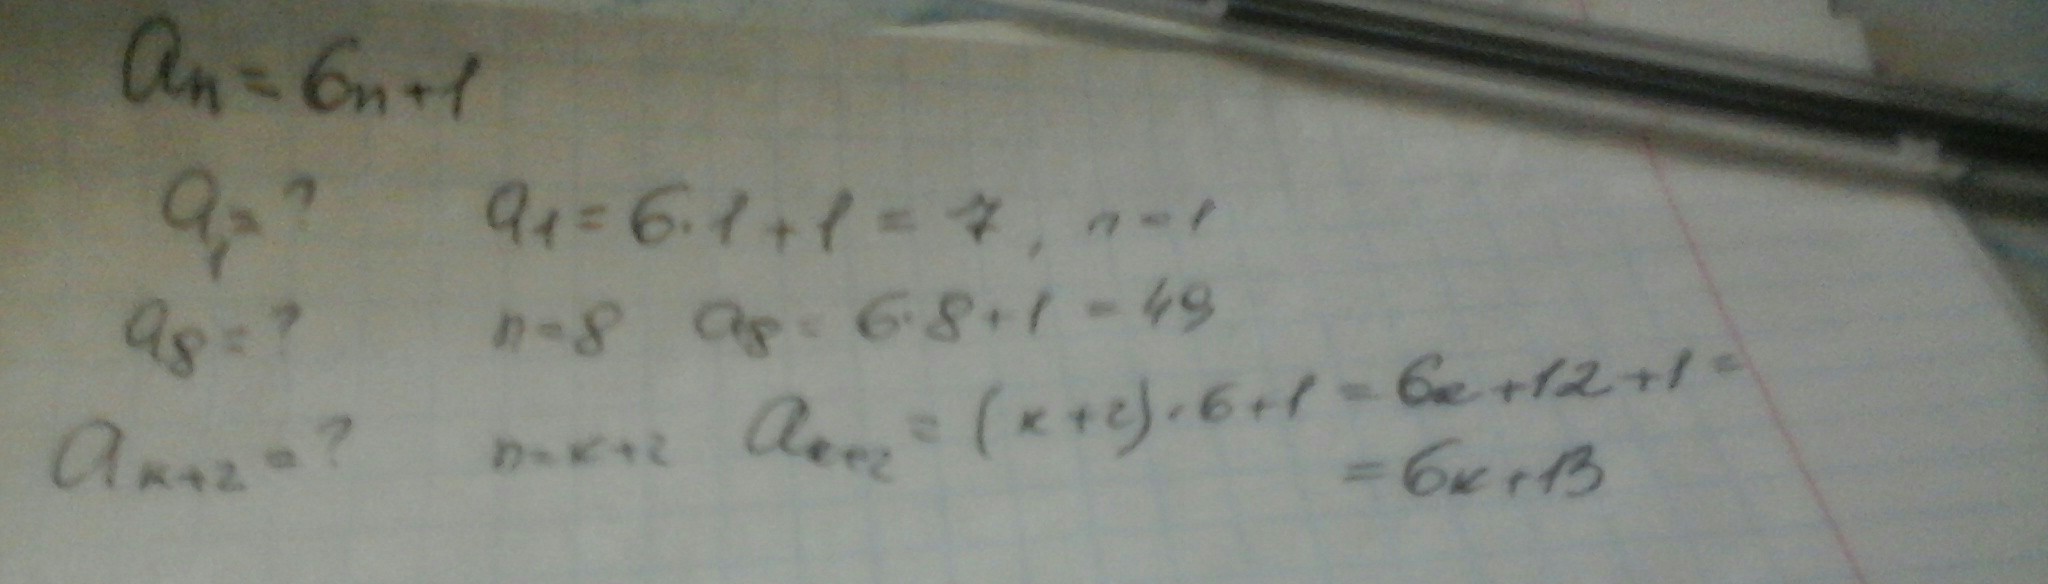 aₙ = 6n+1
a₁ = ? a₁ = 6·1+1 = 7, n=1
a₈ = ? n=8 a₈ = 6·8+1 = 49
aₖ₊₂ = ? n=k+2 aₖ₊₂ = (k+2)·6+1 = 6k+12+1 =
= 6k+13